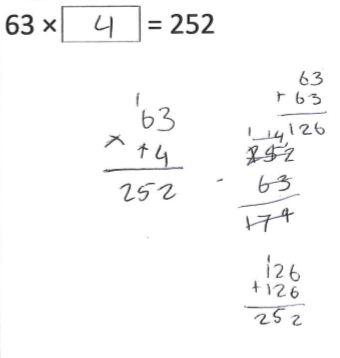 63 × 4 = 252
1
63
× +4
252
63
+ 63
126
1 14 1
- 252
63
174
1
126
+126
252